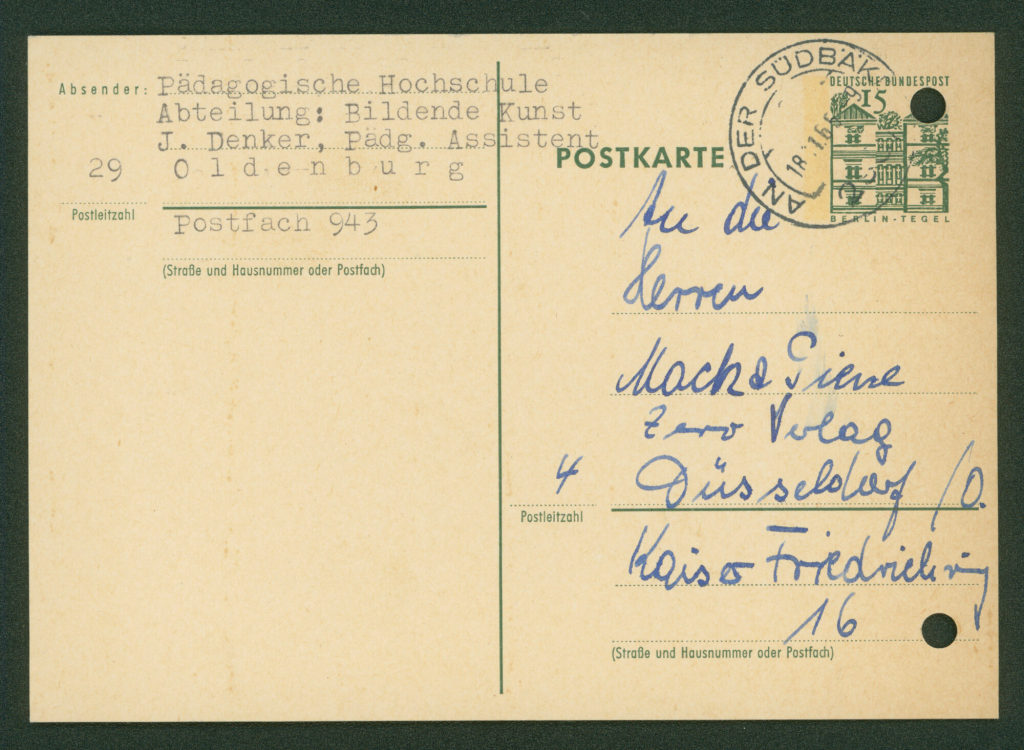 Absender: Pädagogische Hochschule
Abteilung: Bildende Kunst
J. Denker, Pädg. Assistent
29 Oldenburg
Postleitzahl
Postfach 943
(Straße und Hausnummer oder Postfach)
AN DER SÜDBÄK
DEUTSCHE BUNDESPOST
15
18
BERLIN-TEGEL
POSTKARTE
An die
Herren
Mack & Piene
Zero Verlag
4 Düsseldorf /O.
Postleitzahl
Kaiser Friedrichring
16
(Straße und Hausnummer oder Postfach)